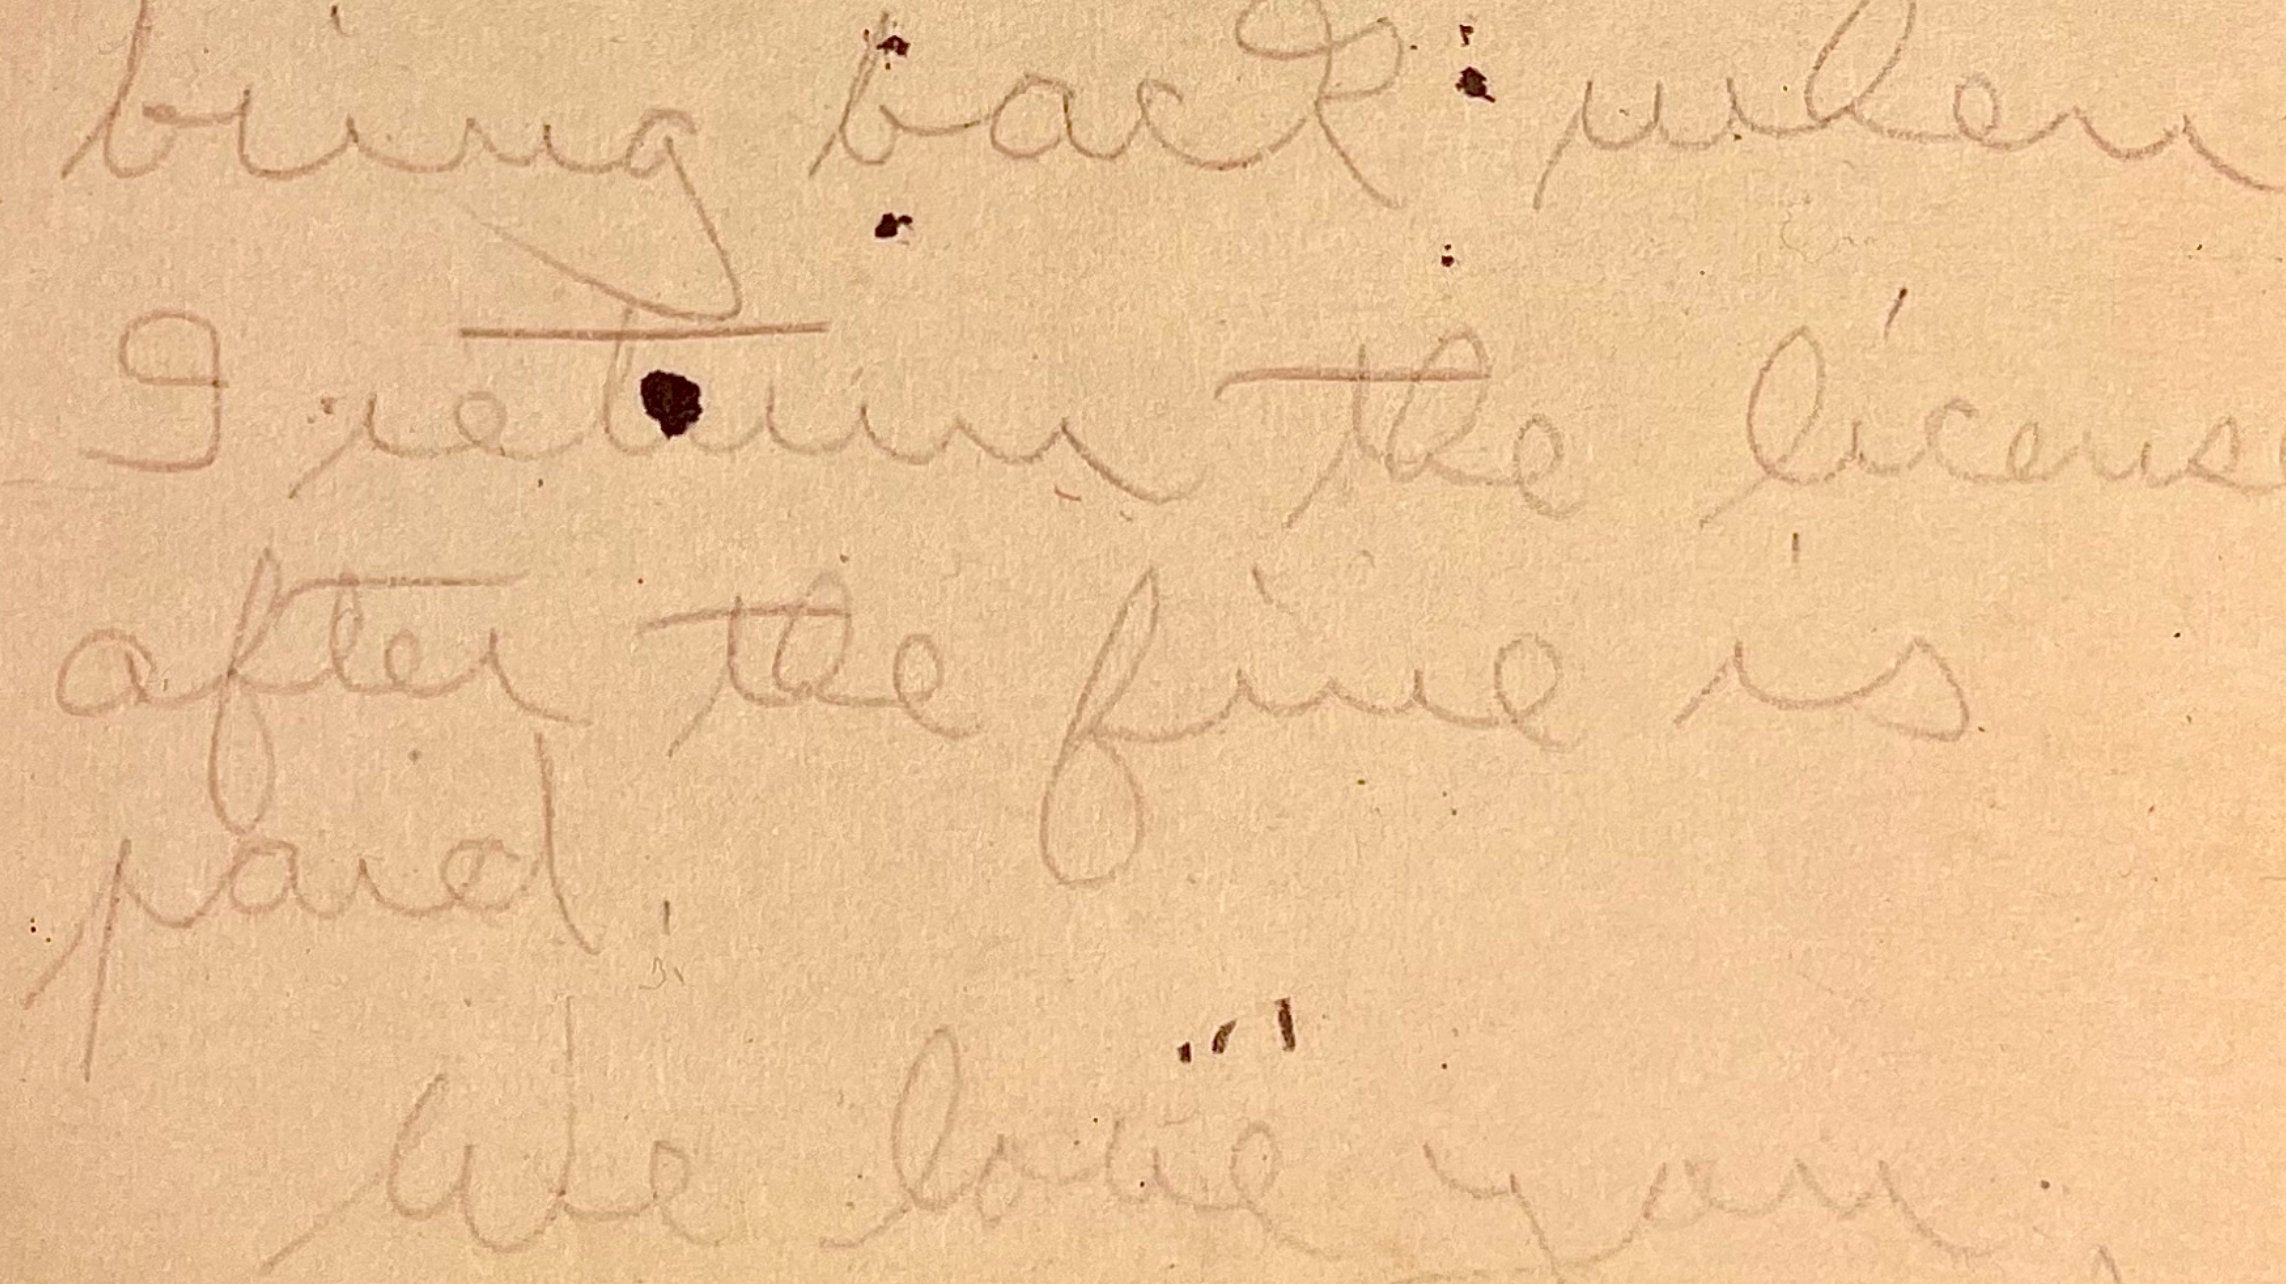 bring back when
I return the license
after the fine is
paid.
We love you